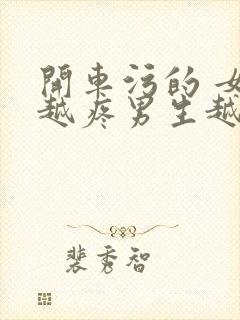 開車污的 女
越疼男生越
裴秀智